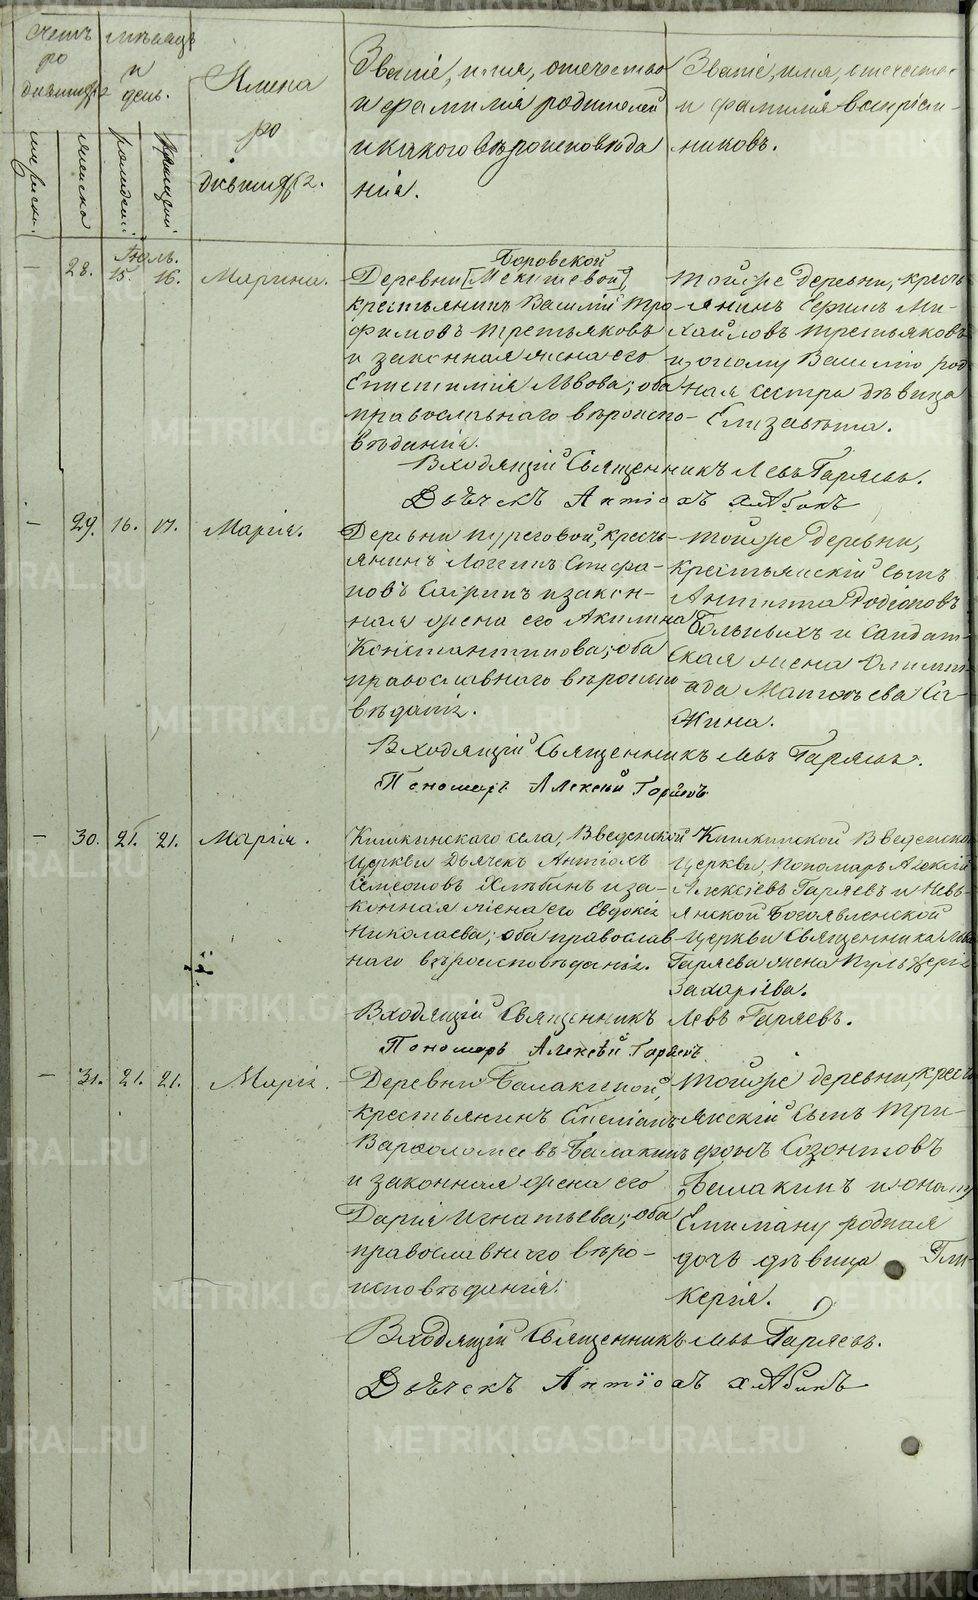 Счетъ родившихся
Мѣсяцъ и день.
Имена родившихся.
Званіе, имя, отечество и фамилія родителей и какого вѣроисповѣданія.
Званіе, имя, отечество и фамилія воспріемниковъ.
мужеска
женска
рожденія
крещенія
Іюль.
28. 15. 16. Марина.
Боровской
Деревни [Мекишевой]
крестьянинъ Василій Тро-
фимовъ Третьяковъ
и законная жена его
Епистимія Львова; оба
православнаго вѣроиспо-
вѣданія.
Тойже деревни, кресть-
янинъ Ефимъ Ми-
хайловъ Третьяковъ
и оному Василію род-
ная сестра дѣвица
Елизавета.
Входящій Священникъ Левъ Гаряевъ.
Дьячекъ Антіохъ Хлѣбинъ
29. 16. 17. Марія.
Деревни Турсовой, кресть-
янинъ Логгинъ Стефа-
новъ и закон-
ная жена его Акилина
Константинова; оба
православнаго вѣроиспо-
вѣданія.
Тойже деревни,
крестьянскій сынъ
Антипа Родіоновъ
Больныхъ и солдат-
ская жена Олимпі-
ада Матѳѣева
Входящій Священникъ Левъ Гаряевъ.
Пономарь Алексѣй Гаряевъ
30. 21. 21. Марія.
Кишкинскаго села, Введенской
церкви Дьячекъ Антіохъ
Симеоновъ Хлѣбинъ и за-
конная жена его Евдокія
Николаева; оба православ-
наго вѣроисповѣданія.
Кишкинской Введенской
церкви, Пономарь Алексій
Алексіевъ Гаряевъ и Невь-
янской Богоявленской
церкви Священника Льва
Гаряева жена Пульхерія
Захаріева.
Входящій Священникъ Левъ Гаряевъ.
Пономарь Алексѣй Гаряевъ
31. 21. 21. Марія.
Деревни Балакиной,
крестьянинъ
Варѳоломеевъ Балакинъ
и законная жена его
Дарія Игнатьева; оба
православнаго вѣро-
исповѣданія.
Тойже деревни, кресть-
янскій сынъ Три-
фонъ Созонтовъ
Балакинъ и оному
родная
дочь дѣвица Гли-
керія.
Входящій Священникъ Левъ Гаряевъ.
Дьячекъ Антіохъ Хлѣбинъ
METRIKI.GASO-URAL.RU